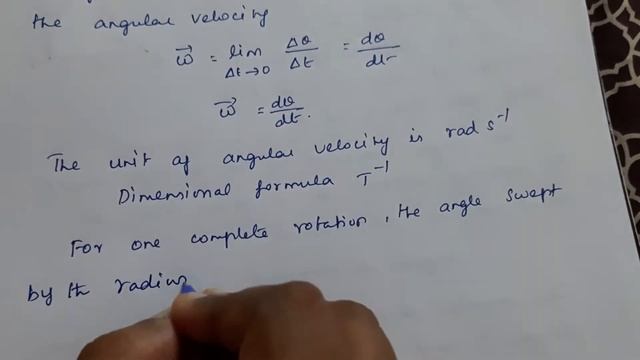 the angular velocity
ω⃗ = lim Δt→0 Δθ/Δt = dθ/dt
ω⃗ = dθ/dt.
The unit of angular velocity is rad s⁻¹
Dimensional formula T⁻¹
For one complete rotation, the angle swept
by th radius